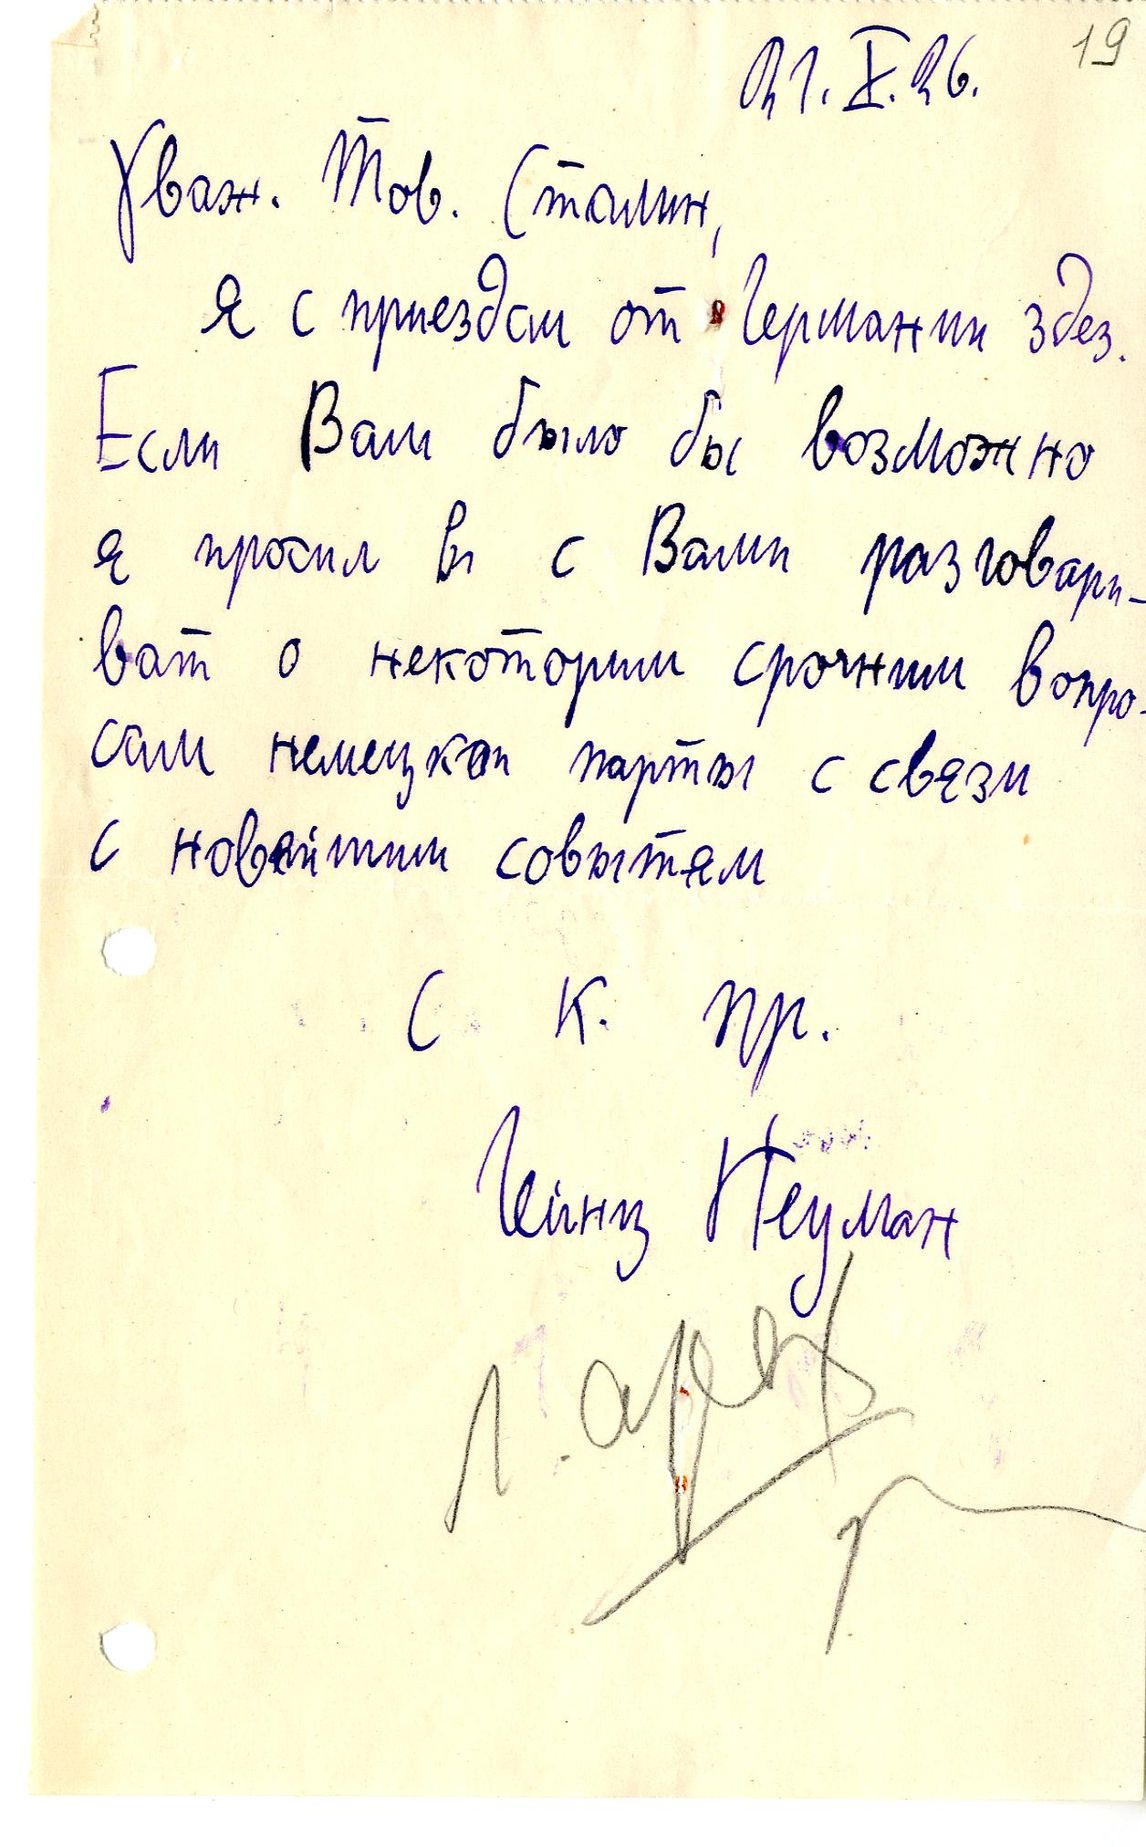 19
21.X.26.
Уваж. Тов. Сталин,
я с приездом от Германии здез.
Если Вам было бы возможно
я просил вы с Вами разговари-
ват о некоторим срочним вопро-
сам немецкой парты с связи
с новейшим событям
С К. пр.
Гейнц Неуман